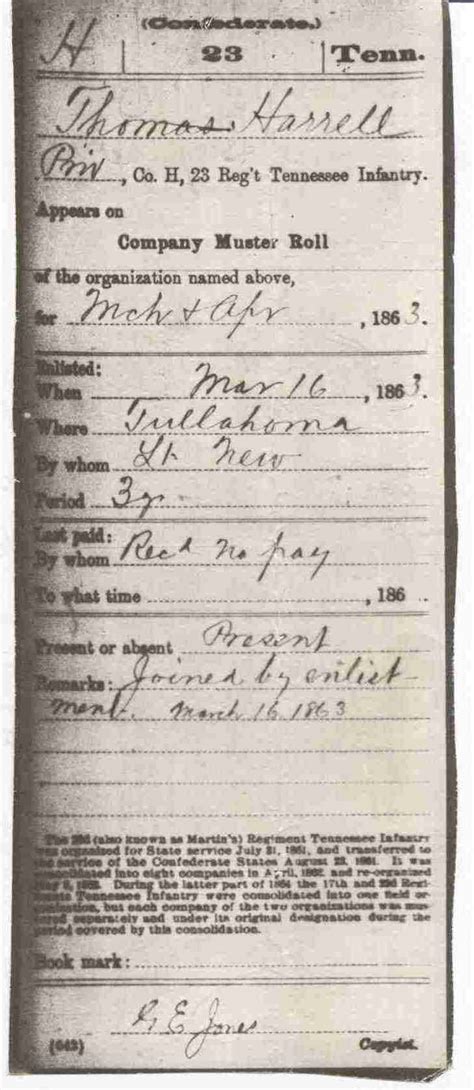 (Confederate.)
H | 23 | Tenn.
Thomas Harrell
Priv, Co. H, 23 Reg't Tennessee Infantry.
Appears on
Company Muster Roll
of the organization named above,
for Mch & Apr, 1863.
Enlisted:
When Mar 16, 1863.
Where Tullahoma
By whom Lt New
Period 3 y.
Last paid:
By whom Recd no pay
To what time , 186
Present or absent Present
Remarks: Joined by enlist-
ment. March 16, 1863
The 23d (also known as Martin's) Regiment Tennessee Infantry
was organized for State service July 21, 1861, and transferred to
the service of the Confederate States August 23, 1861. It was
consolidated into eight companies in April, 1862, and re-organized
May 8, 1862. During the latter part of 1864 the 17th and 23d Regi-
ments Tennessee Infantry were consolidated into one field or-
ganization, but each company of the two organizations was mus-
tered separately and under its original designation during the
period covered by this consolidation.
Book mark:
G E Jones
(642) Copyist.